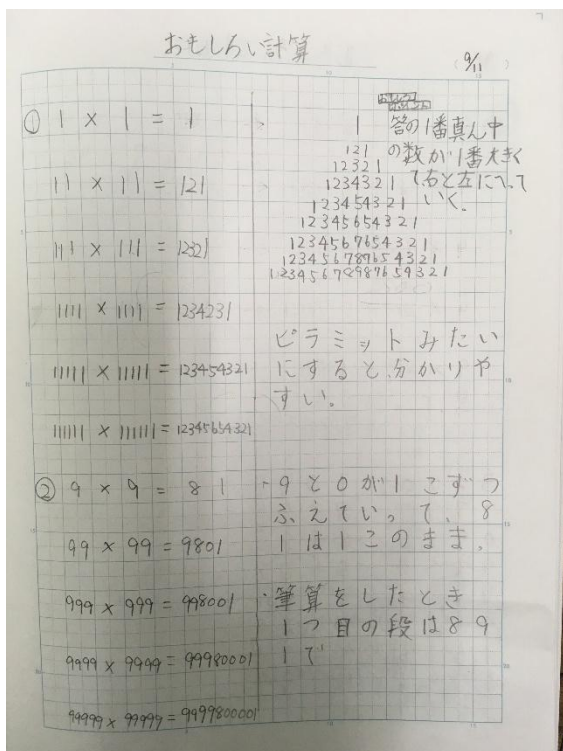 おもしろい計算
9/11
① 1 × 1 = 1
11 × 11 = 121
111 × 111 = 12321
1111 × 1111 = 1234231
11111 × 11111 = 123454321
111111 × 111111 = 12345654321
1
121
12321
1234321
123454321
12345654321
1234567654321
123456787654321
12345678987654321
ポイント
答の1番真ん中
の数が1番大きく
て右と左にへって
いく。
ピラミットみたい
にすると分かりや
すい。
② 9 × 9 = 81
99 × 99 = 9801
999 × 999 = 998001
9999 × 9999 = 99980001
99999 × 99999 = 9999800001
・9と0が1こずつ
ふえていって、8
1は1このまま、
・筆算をしたとき
1つ目の段は89
1で